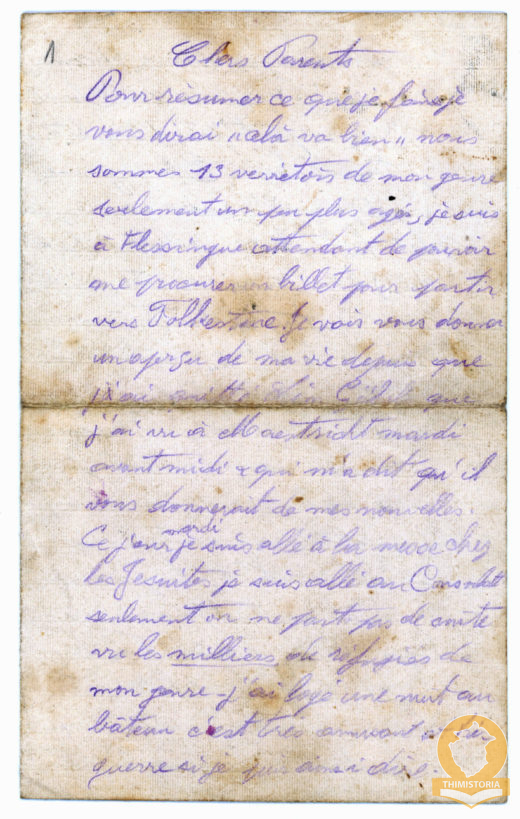 1
Chers Parents
Pour résumer ce que je fais je
vous dirai "celà va bien" nous
sommes 13 verviétois de mon genre
seulement un peu plus agés, je suis
à Flessingue attendant de pouvoir
me procurer un billet pour partir
vers Folkestone. Je vais vous donner
un aperçu de ma vie depuis que
j'ai quitté que
j'ai vu à Maestricht mardi
avant midi & qui m'a dit qu'il
vous donnerait de mes nouvelles.
Ce jour mardi je suis allé à la messe chez
les Jesuites je suis allé au Consulat
seulement on ne part pas de suite
vu les milliers de réfugiés de
mon genre - j'ai logé une nuit au
bâteau c'est très amusant
guerre si je puis ainsi dire.
THIMISTORIA